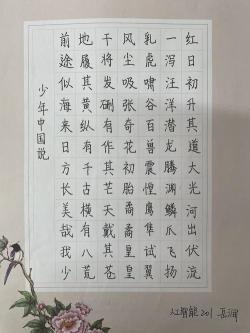 红日初升其道大光河出伏流
一泻汪洋潜龙腾渊鳞爪飞扬
乳虎啸谷百兽震惶鹰隼试翼
风尘吸张奇花初胎矞矞皇皇
干将发硎有作其芒天戴其苍
地履其黄纵有千古横有八荒
前途似海来日方长美哉我少
少年中国説
人工智能201